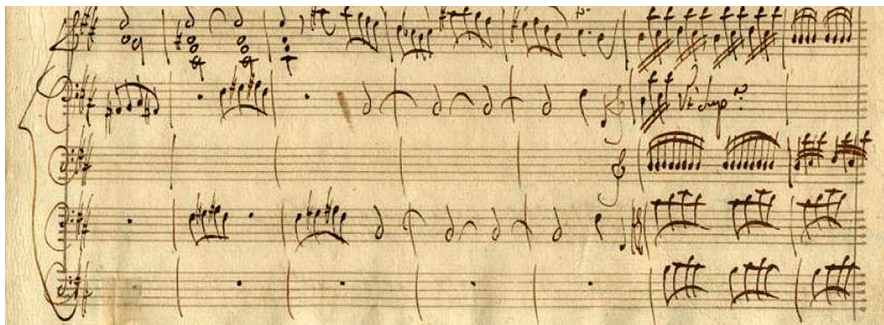 Vt sup.ª